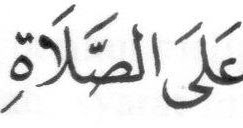 عَلَى الصَّلَاةِ